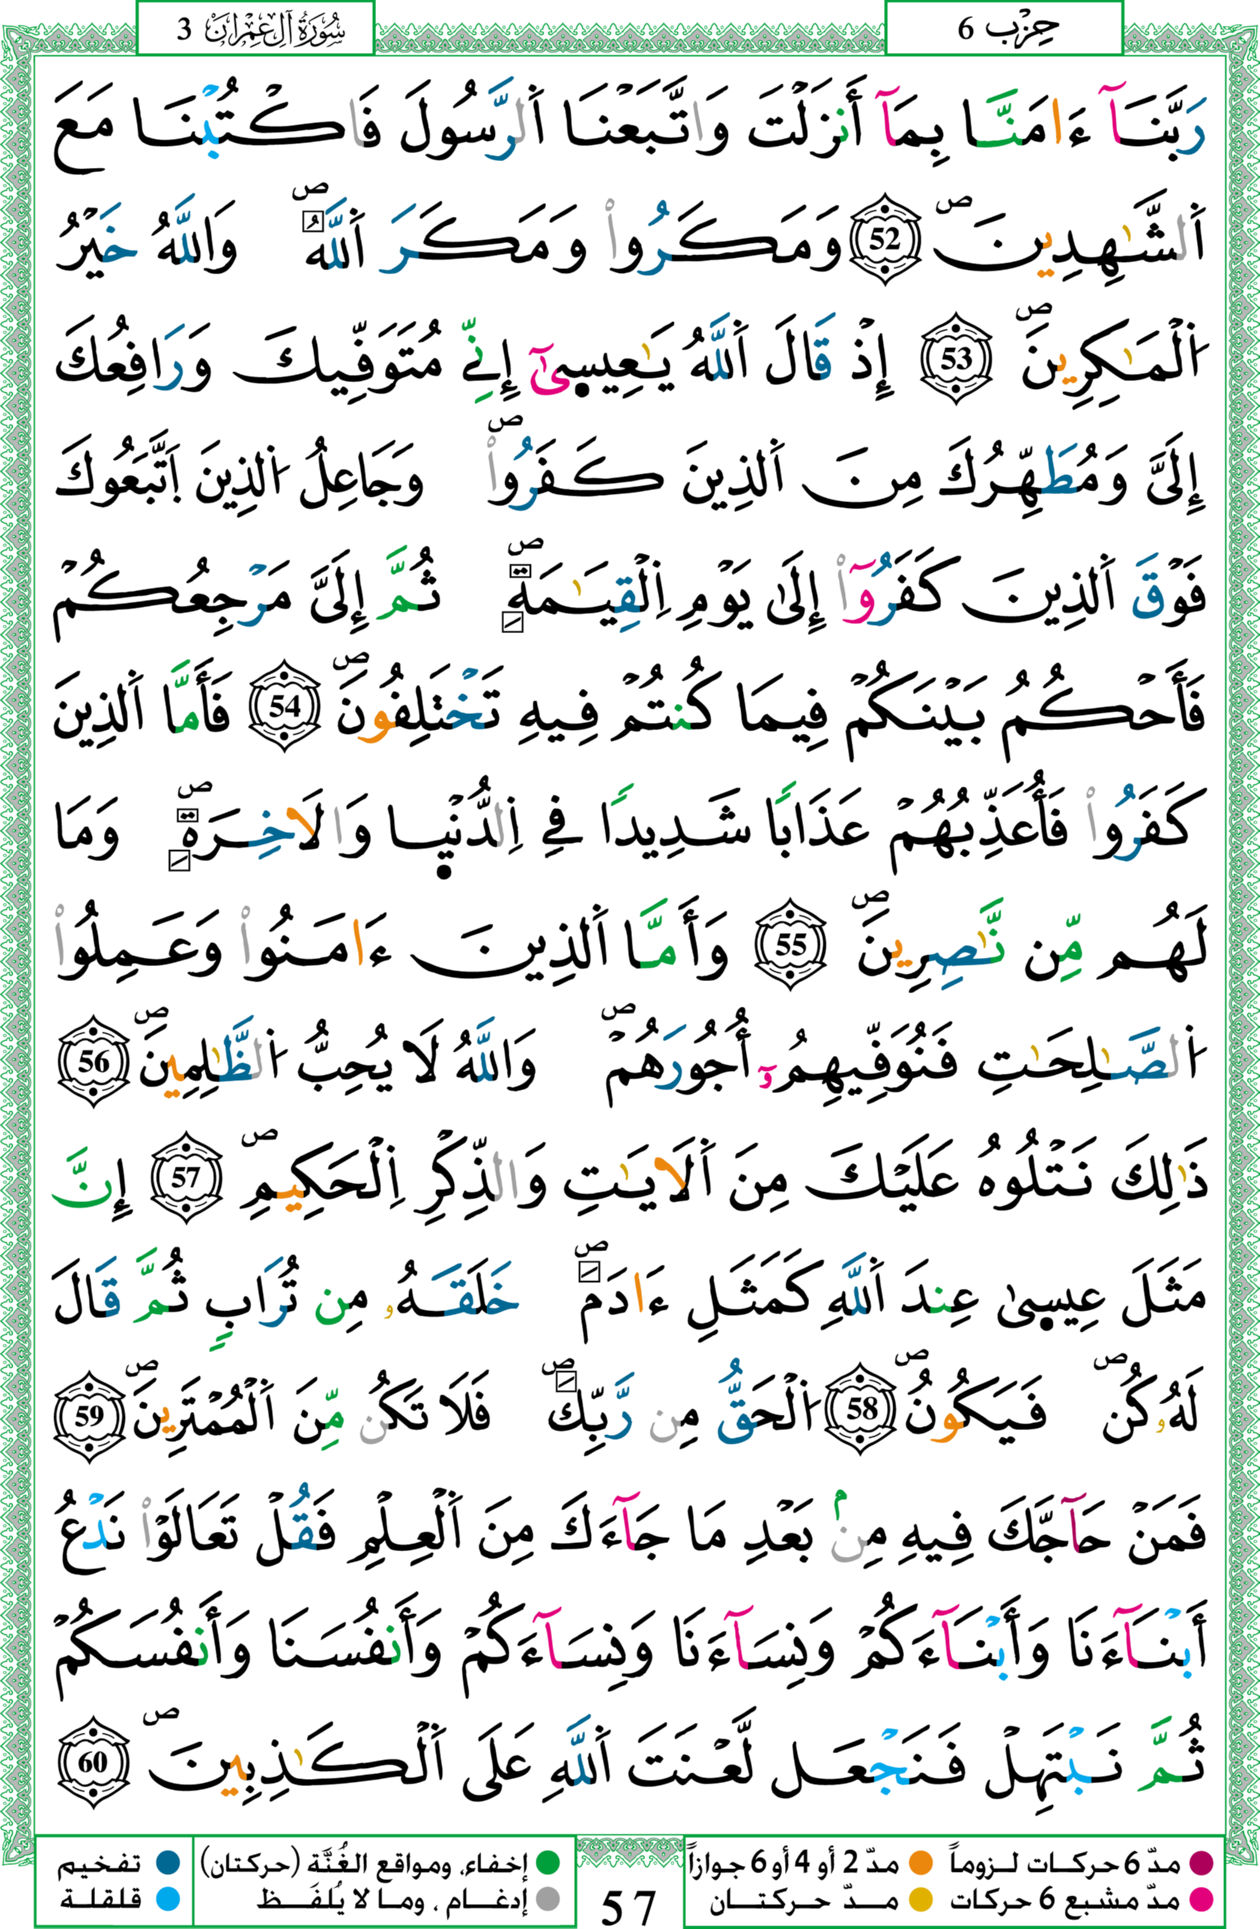 سُورَةُ آلِ عِمْرَان 3
حِزْب 6
رَبَّنَآ ءَامَنَّا بِمَآ أَنزَلْتَ وَاتَّبَعْنَا اَ۬لرَّسُولَ فَاكْتُبْنَا مَعَ
اَ۬لشَّٰهِدِينَۖ 52 وَمَكَرُواْ وَمَكَرَ اَ۬للَّهُۖ وَاللَّهُ خَيْرُ
اُ۬لْمَٰكِرِينَۖ 53 إِذْ قَالَ اَ۬للَّهُ يَٰعِيسىٰٓ إِنِّے مُتَوَفِّيكَ وَرَافِعُكَ
إِلَىَّ وَمُطَهِّرُكَ مِنَ اَ۬لذِينَ كَفَرُواْۖ وَجَاعِلُ اُ۬لذِينَ اَ۪تَّبَعُوكَ
فَوْقَ اَ۬لذِينَ كَفَرُوٓاْ إِلَىٰ يَوْمِ اِ۬لْقِيَٰمَةِۖ ثُمَّ إِلَىَّ مَرْجِعُكُمْ
فَأَحْكُمُ بَيْنَكُمْ فِيمَا كُنتُمْ فِيهِ تَخْتَلِفُونَۖ 54 فَأَمَّا اَ۬لذِينَ
كَفَرُواْ فَأُعَذِّبُهُمْ عَذَابًا شَدِيدًا فِے اِ۬لدُّنْي۪ا وَالَاخِرَةِۖ وَمَا
لَهُم مِّن نَّٰصِرِينَۖ 55 وَأَمَّا اَ۬لذِينَ ءَامَنُواْ وَعَمِلُواْ
اُ۬لصَّٰلِحَٰتِ فَنُوَفِّيهِمُۥٓ أُجُورَهُمْۖ وَاللَّهُ لَا يُحِبُّ اُ۬لظَّٰلِمِينَۖ 56
ذَٰلِكَ نَتْلُوهُ عَلَيْكَ مِنَ اَ۬لَايَٰتِ وَالذِّكْرِ اِ۬لْحَكِيمِۖ 57 إِنَّ
مَثَلَ عِيسىٰ عِندَ اَ۬للَّهِ كَمَثَلِ ءَادَمَۖ خَلَقَهُۥ مِن تُرَابٖ ثُمَّ قَالَ
لَهُۥ كُنۖ فَيَكُونُۖ 58 اُ۬لْحَقُّ مِن رَّبِّكَۖ فَلَا تَكُن مِّنَ اَ۬لْمُمْتَرِينَۖ 59
فَمَنْ حَآجَّكَ فِيهِ مِنۢ بَعْدِ مَا جَآءَكَ مِنَ اَ۬لْعِلْمِ فَقُلْ تَعَالَوْاْ نَدْعُ
أَبْنَآءَنَا وَأَبْنَآءَكُمْ وَنِسَآءَنَا وَنِسَآءَكُمْ وَأَنفُسَنَا وَأَنفُسَكُمْ
ثُمَّ نَبْتَهِلْ فَنَجْعَل لَّعْنَتَ اَ۬للَّهِ عَلَى اَ۬لْكَٰذِبِينَۖ 60
مدّ 6 حركات لـزوماً مدّ 2 أو 4 أو 6 جوازاً
مدّ مشبع 6 حركات مدّ حركتـان
إخفاء، ومواقع الغُنَّة (حركتان) تفخيم
إدغـام ، ومـا لا يُلفَـظ قلقلة
57